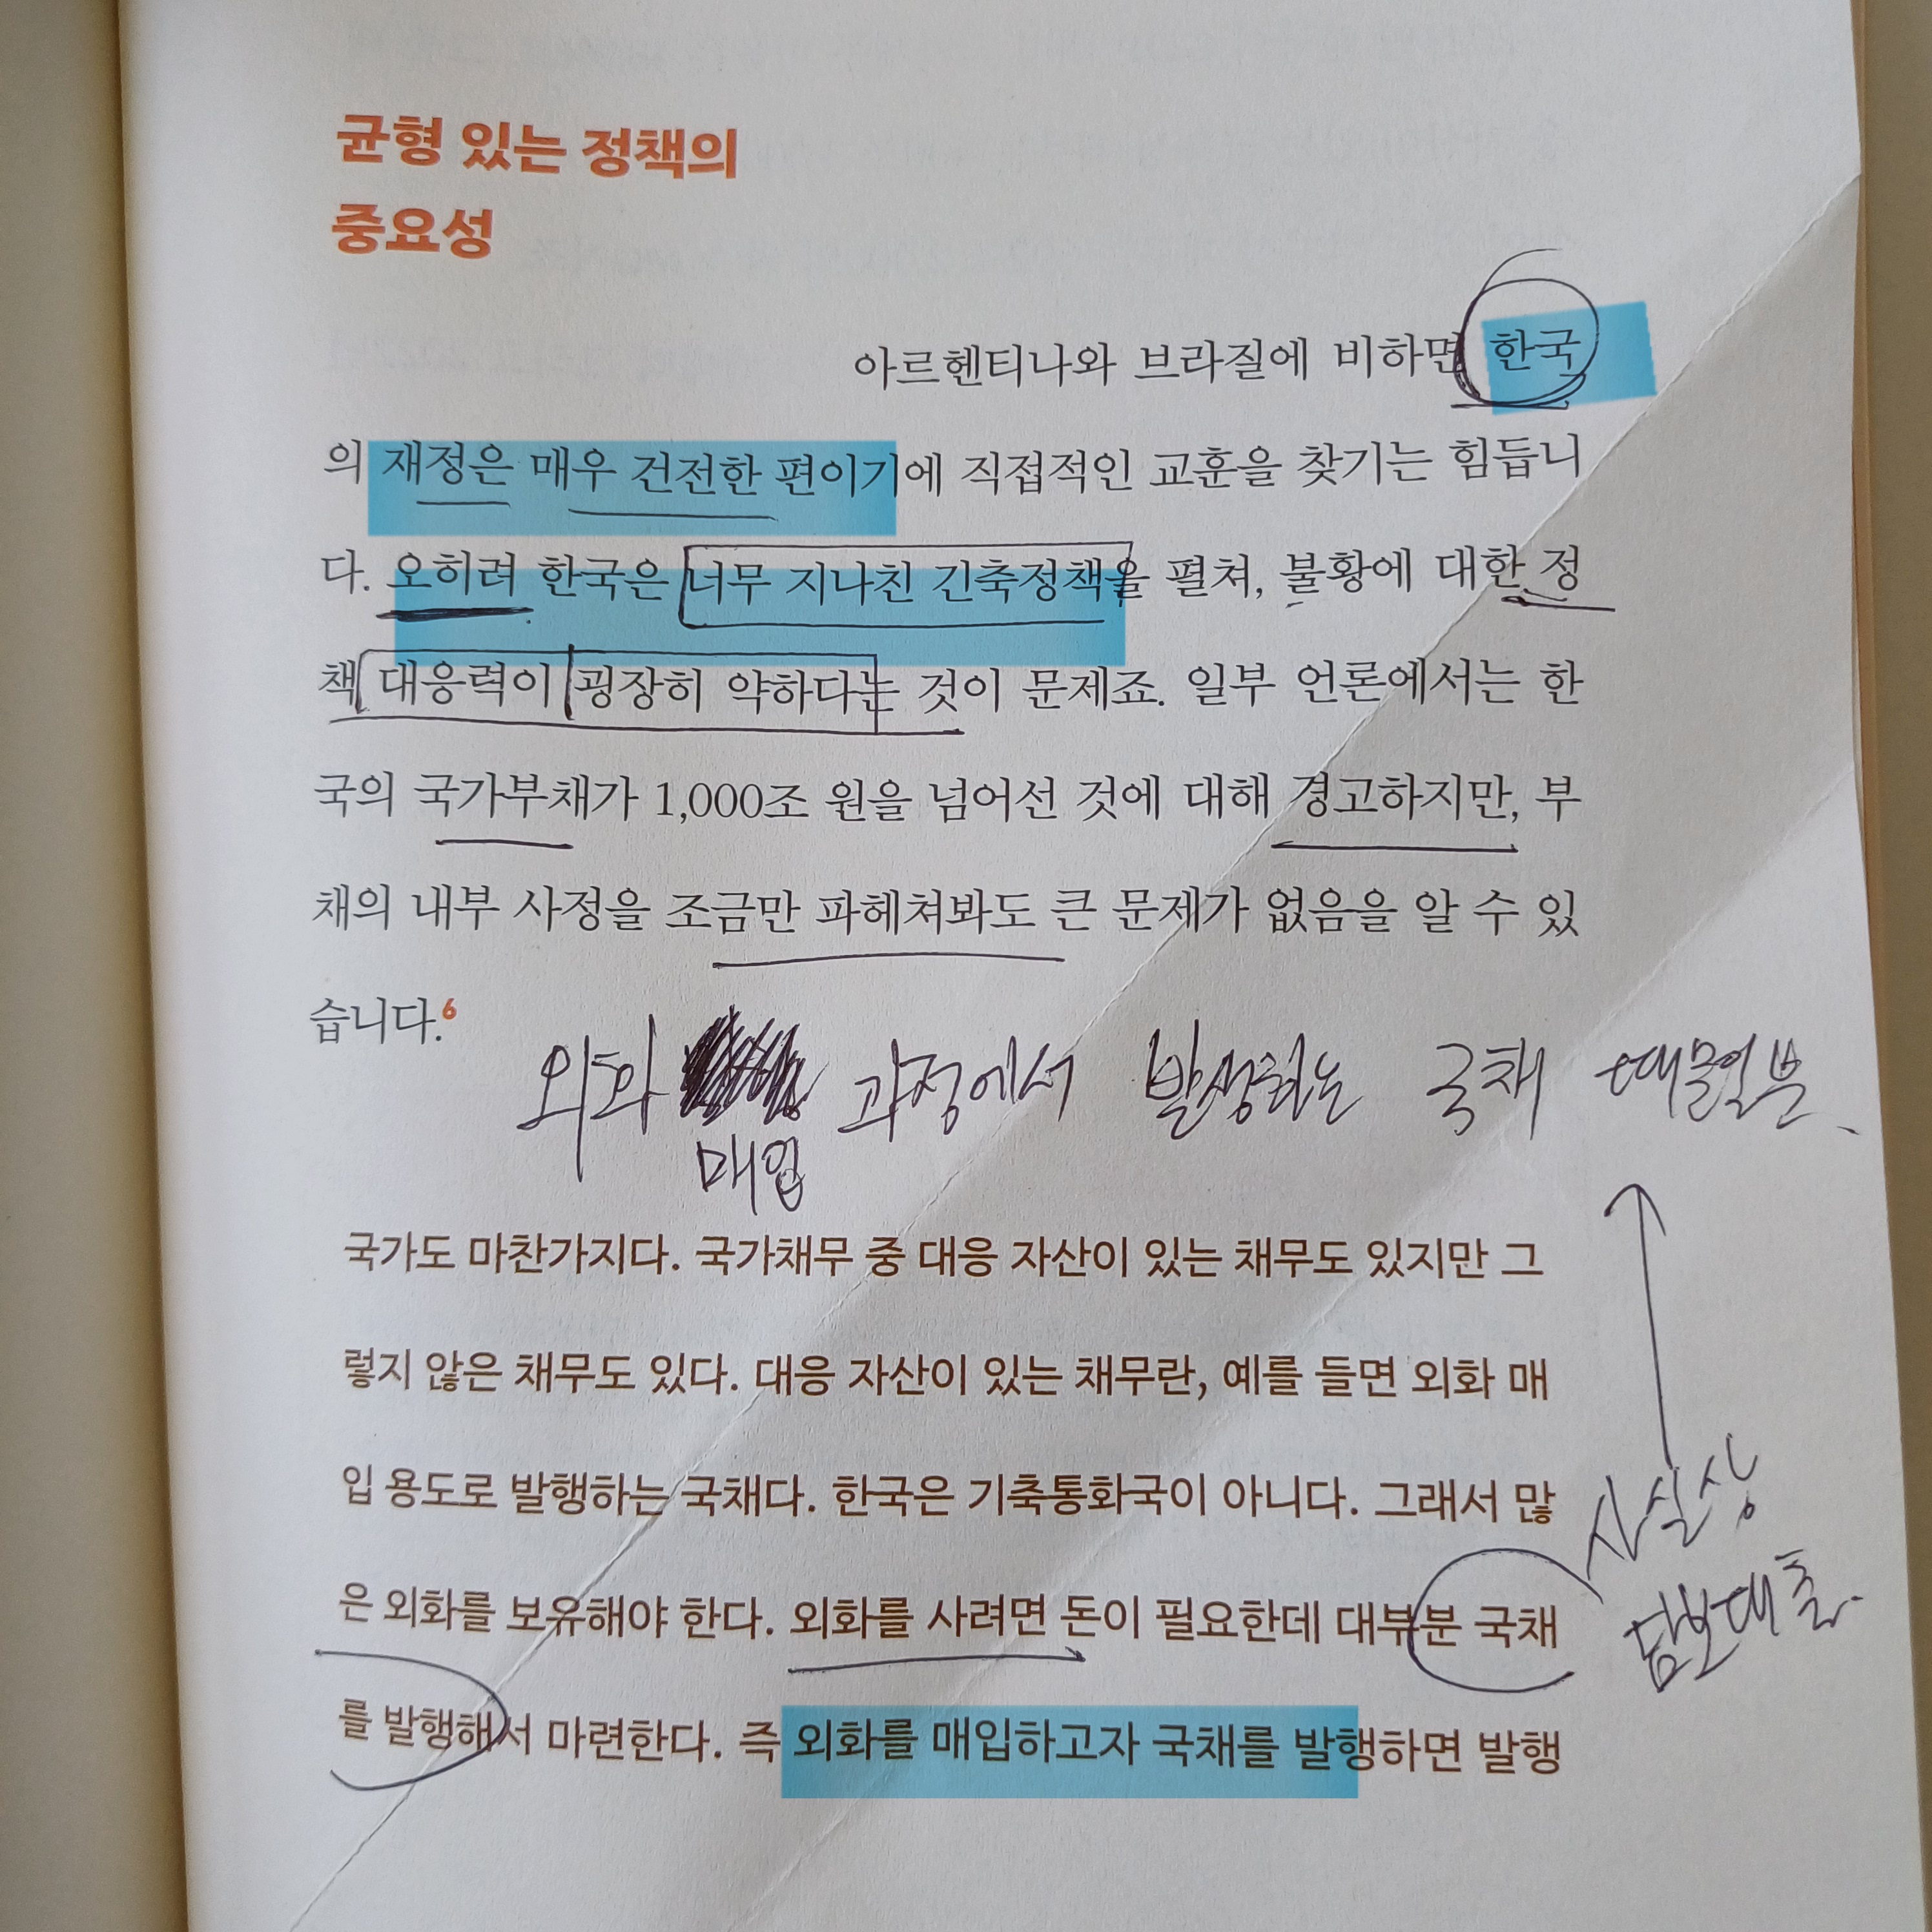 균형 있는 정책의
중요성
아르헨티나와 브라질에 비하면 한국
의 재정은 매우 건전한 편이기에 직접적인 교훈을 찾기는 힘듭니
다. 오히려 한국은 너무 지나친 긴축정책을 펼쳐, 불황에 대한 정
책 대응력이 굉장히 약하다는 것이 문제죠. 일부 언론에서는 한
국의 국가부채가 1,000조 원을 넘어선 것에 대해 경고하지만, 부
채의 내부 사정을 조금만 파헤쳐봐도 큰 문제가 없음을 알 수 있
습니다.6
외화 과정에서 발생되는 국채
매입
국가도 마찬가지다. 국가채무 중 대응 자산이 있는 채무도 있지만 그
렇지 않은 채무도 있다. 대응 자산이 있는 채무란, 예를 들면 외화 매
입 용도로 발행하는 국채다. 한국은 기축통화국이 아니다. 그래서 많
은 외화를 보유해야 한다. 외화를 사려면 돈이 필요한데 대부분 국채
를 발행해서 마련한다. 즉 외화를 매입하고자 국채를 발행하면 발행
사실상
담보대출.